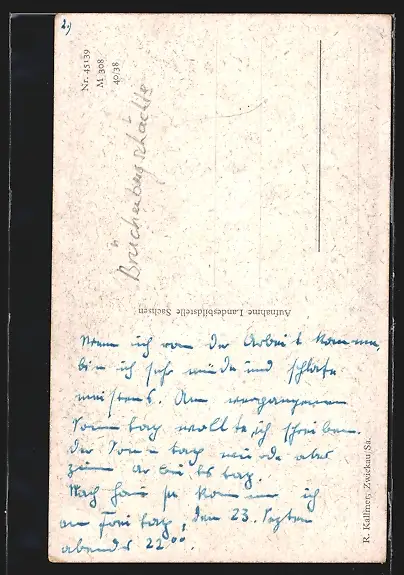 2.)
Nr. 45139
M 308
40/38
Brückenbergschächte
Aufnahme Landesbildstelle Sachsen
Wenn ich von der Arbeit komme,
bin ich sehr müde und schlafe
meistens. Am vergangenen
Sonntag wollte ich schreiben.
Der Sonntag wurde aber
zum Arbeitstag.
Nach Hause komme ich
am Freitag, den 23. Septem
abends 22⁰⁰
R. Kallmer, Zwickau/Sa.